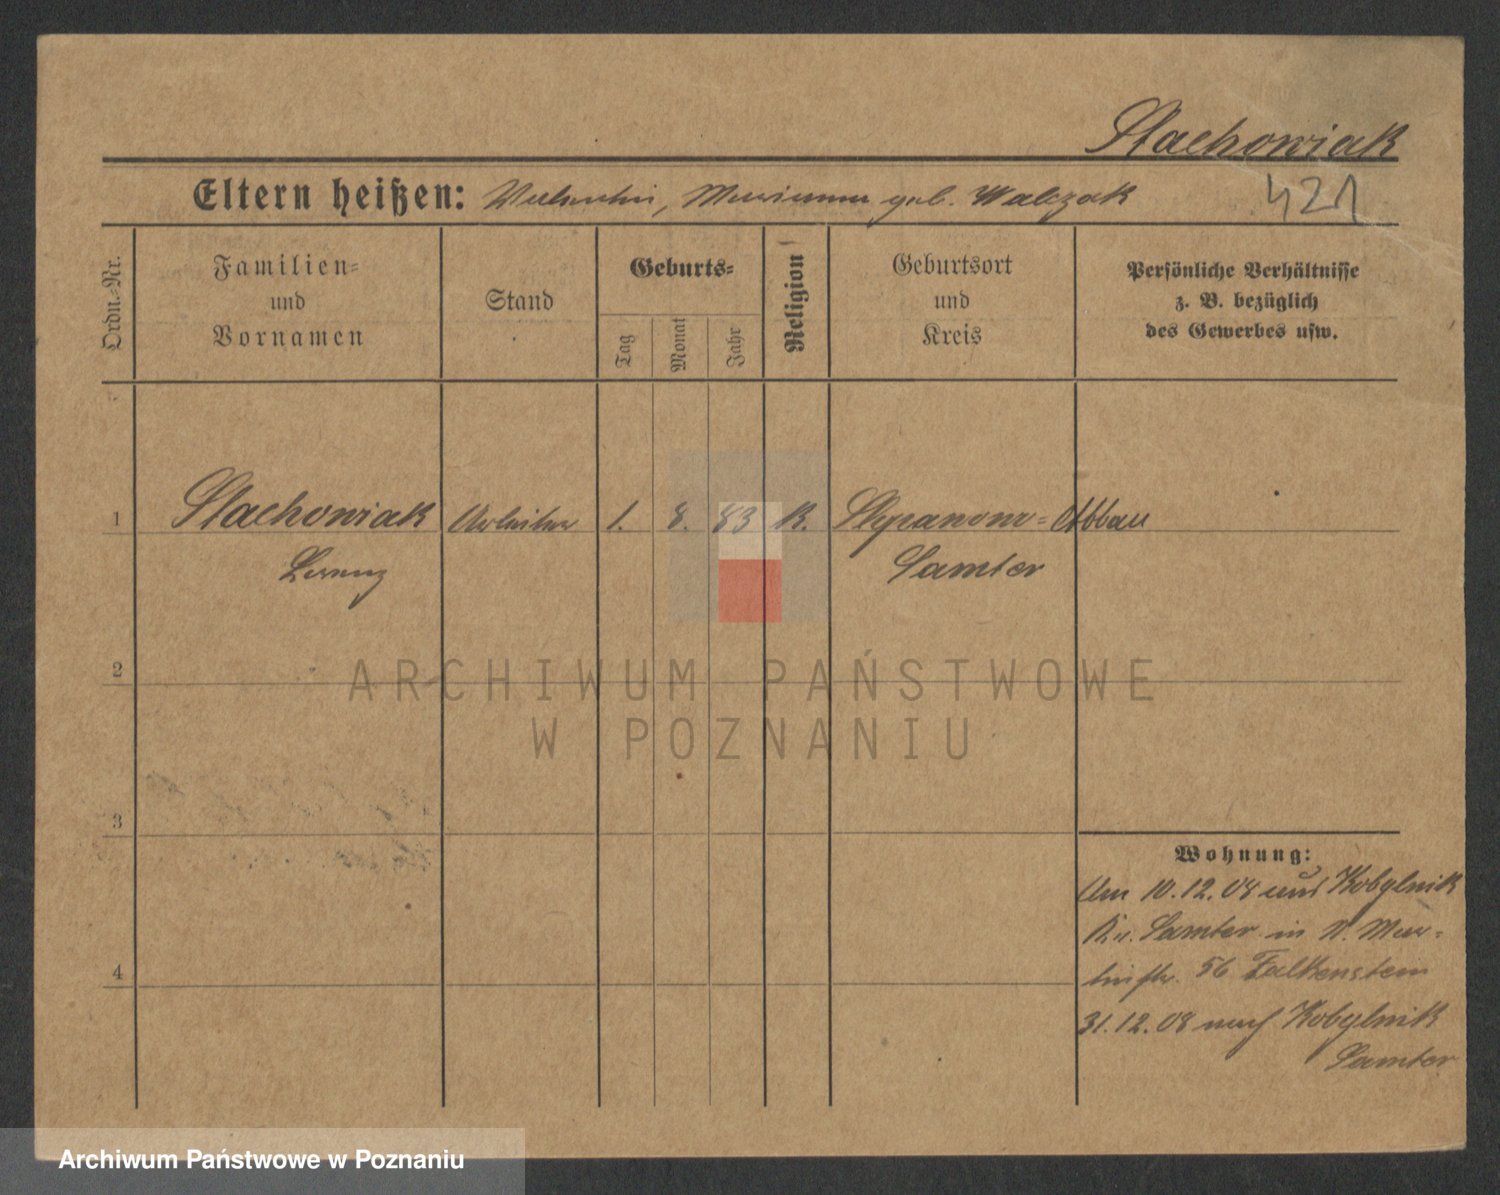 Stachowiak
Eltern heißen: Valentin, Marianna geb. Walczak
421
Ordn.-Nr.
Familien-
und
Vornamen
Stand
Geburts-
Tag
Monat
Jahr
Religion
Geburtsort
und
Kreis
Persönliche Verhältnisse
z. B. bezüglich
des Gewerbes usw.
1 Stachowiak Arbeiter 1. 8. 83 K. Abbau
Lorenz Samter
2
ARCHIWUM PAŃSTWOWE
W POZNANIU
3
Wohnung:
Am 10.12.08 aus Kobylnik
Kr. Samter in
56 Falkenstein
4
31.12.08 nach Kobylnik
Samter
Archiwum Państwowe w Poznaniu